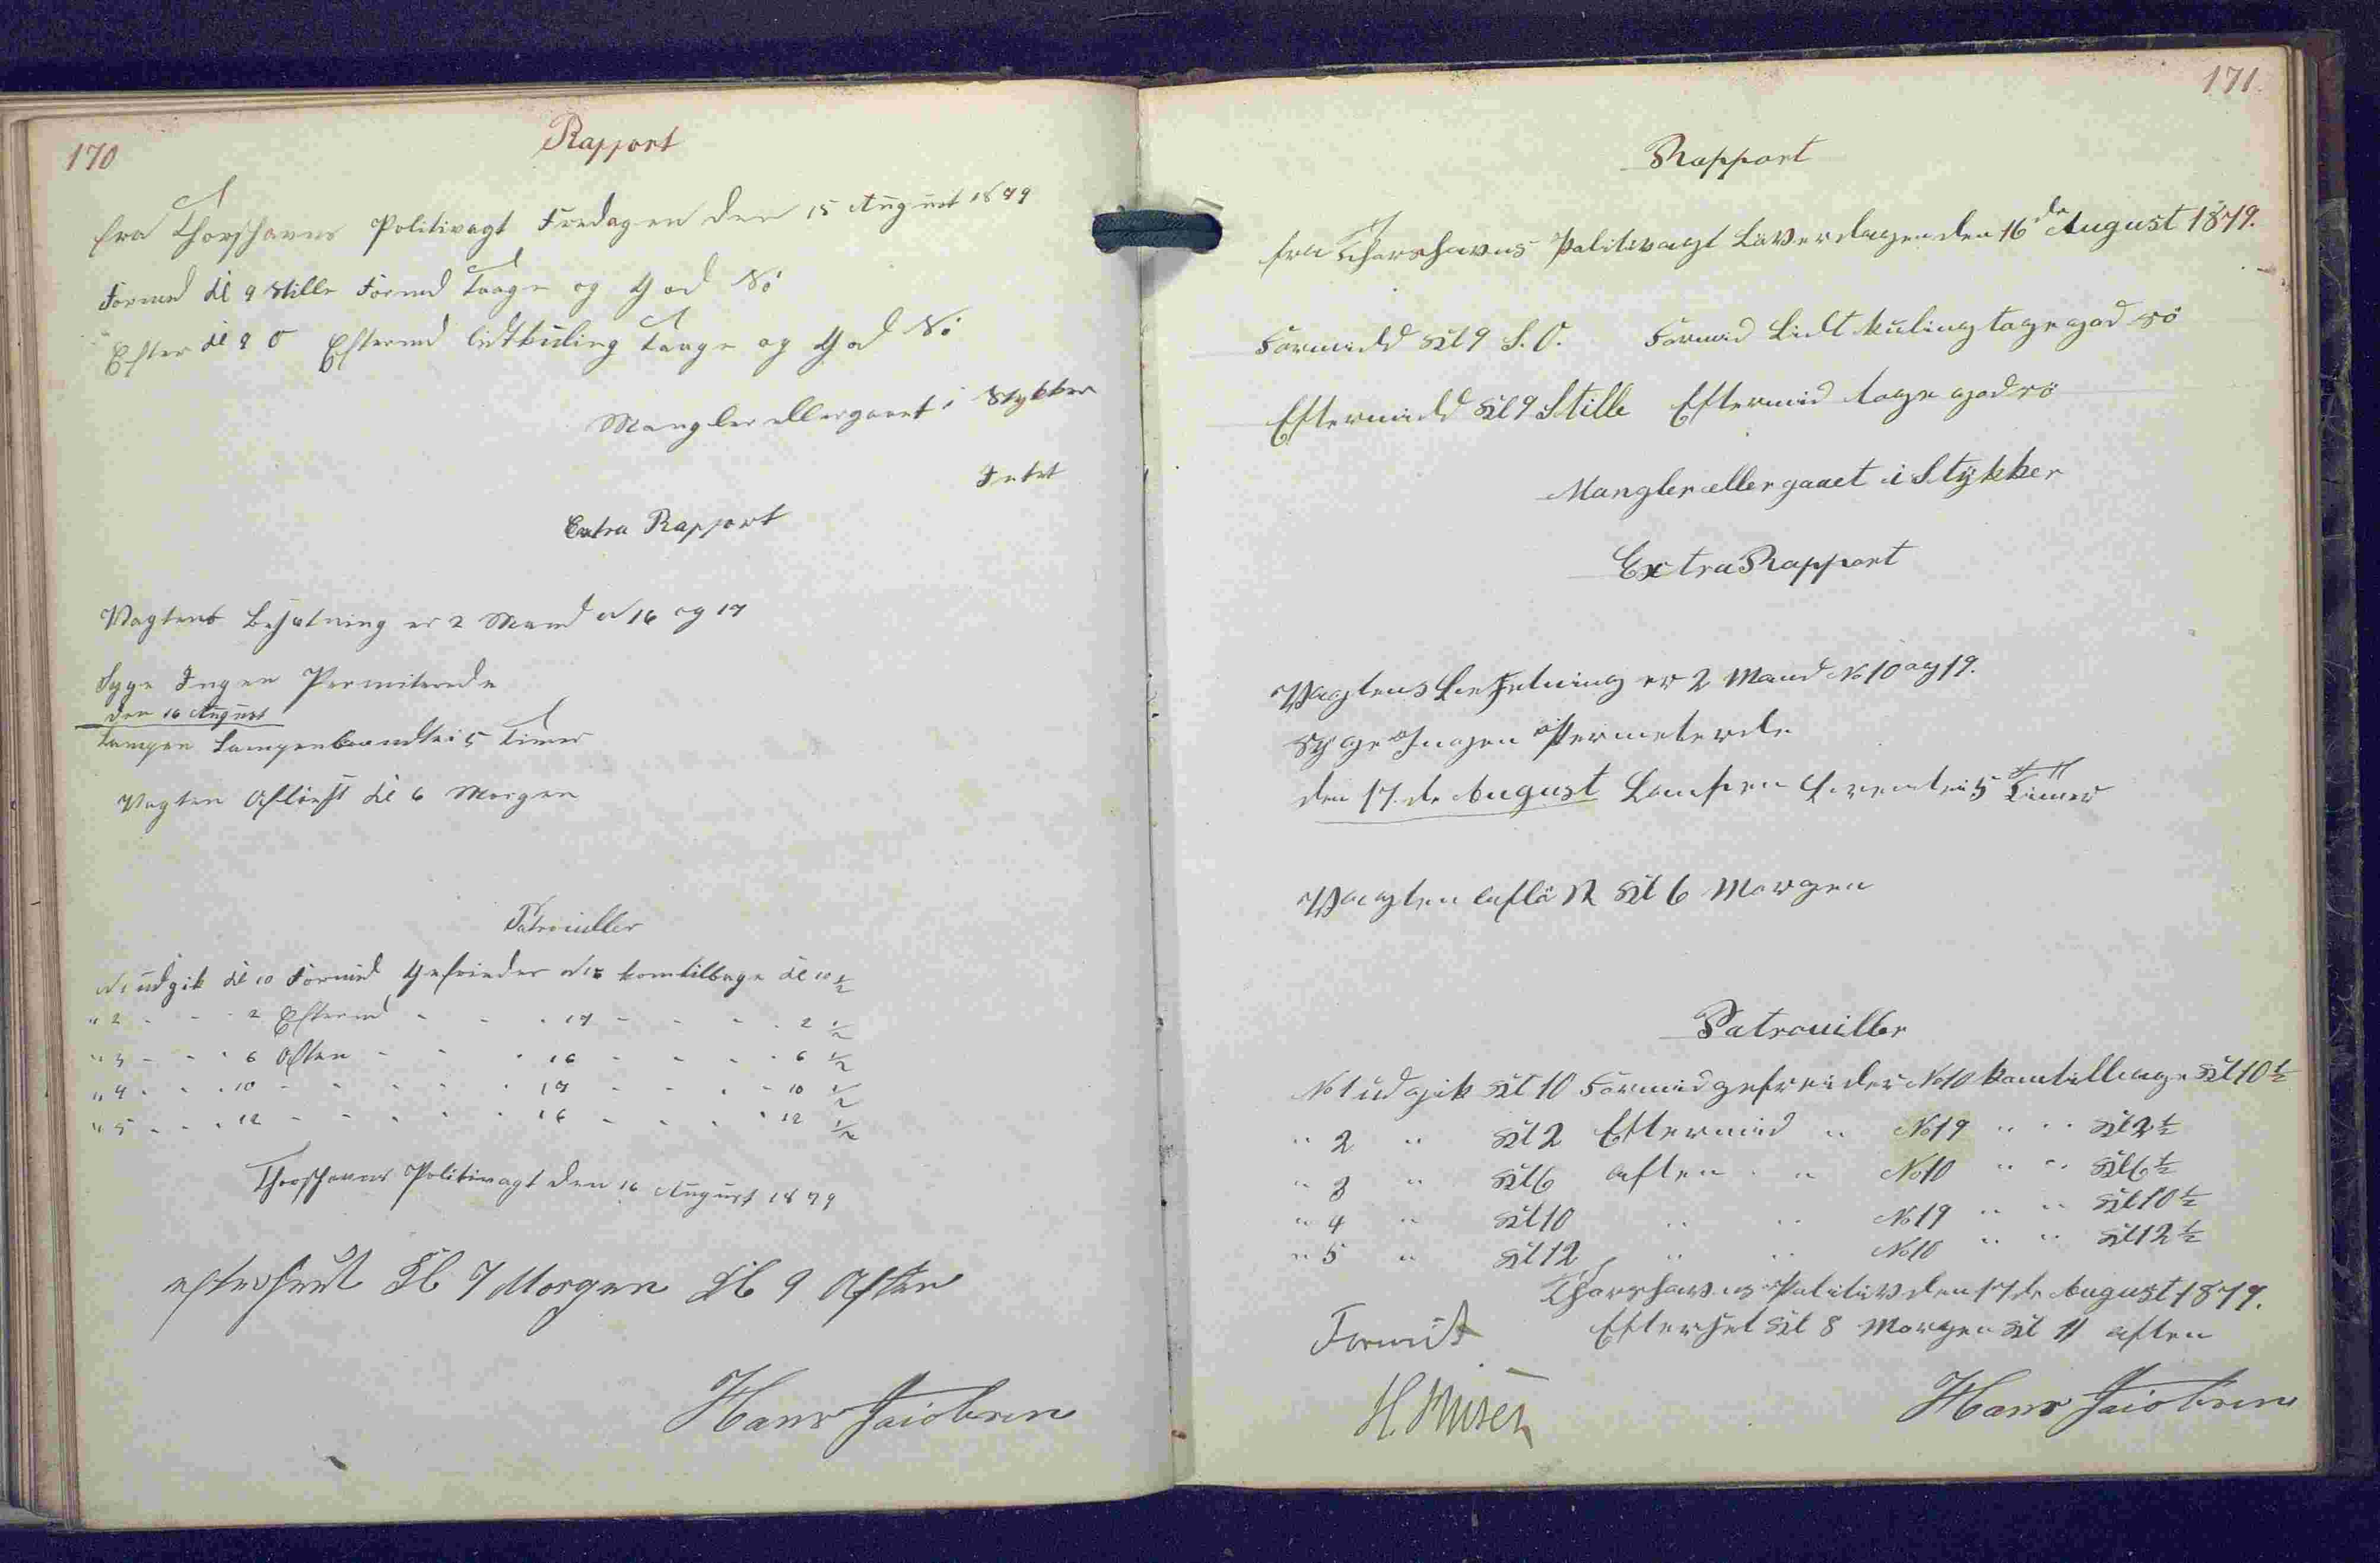 170
Rapport
fra Thorshavns Politivagt Fredagen den 15 August 1879
Formd Kl 9 Stille Formd Taage og God Rö
Efter Kl 9 O Eftermd lidt kuling Taage og God Rö
Mangler eller gaaet i Stykker
Intet
Extra Rapport
Vagtens Besætning er 2 Mand N 16 og 17
Syge Ingen Permiterede
den 16 August
Lampen brændte i 5 Timer
Vagten Aflöst Kl 6 Morgen
Patrouiller
N 1 udgik Kl 10 Formd Gefreider N 16 kom tilbage Kl 10 1/2
" 2 - - - 2 Efterm - - - 17 - - - - 2 1/2
" 3 - - - 6 Aften - - - 16 - - - - 6 1/2
" 4 - - - 10 - - - - 17 - - - - 10 1/2
" 5 - - - 12 - - - - 16 - - - - 12 1/2
Thorshavns Politivagt den 16 August 1879
efterseet Kl 7 Morgen Kl 9 Aften
Hans Jacobsen
171.
Rapport
fra Thorshavns Politivagt Löverdagen den 16 de August 1879.
Formidd Kl 9 S.O. Formid Lidt kuling tage god rö
Eftermidd Kl 9 Stille Eftermid tage god rö
Mangler eller gaaet i Stykker
Extra Rapport
Vagtens Besetning er 2 Mand No 10 og 19.
Syge Ingen Permeterde
den 17. de August Lampen brendte i 5 Timer
Vagten aflöst Kl 6 Morgen
Patrouiller
No 1 udgik Kl 10 Formid gefreider No 10 kom tilbage Kl 10 1/2
" 2 " Kl 2 Eftermid " No 19 " " Kl 2 1/2
" 3 " Kl 6 aften " No 10 " " Kl 6 1/2
" 4 " Kl 10 " " No 19 " " Kl 10 1/2
" 5 " Kl 12 " " No 10 " " Kl 12 1/2
Thorshavns Politiv den 17 de August 1879.
Efterset Kl 8 Morgen Kl 11 aften
Hans Jacobsen